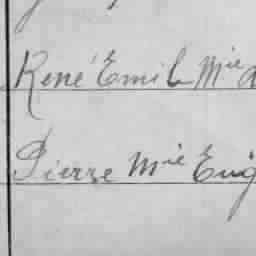 René Emile Mie
Pierre Mie Eug